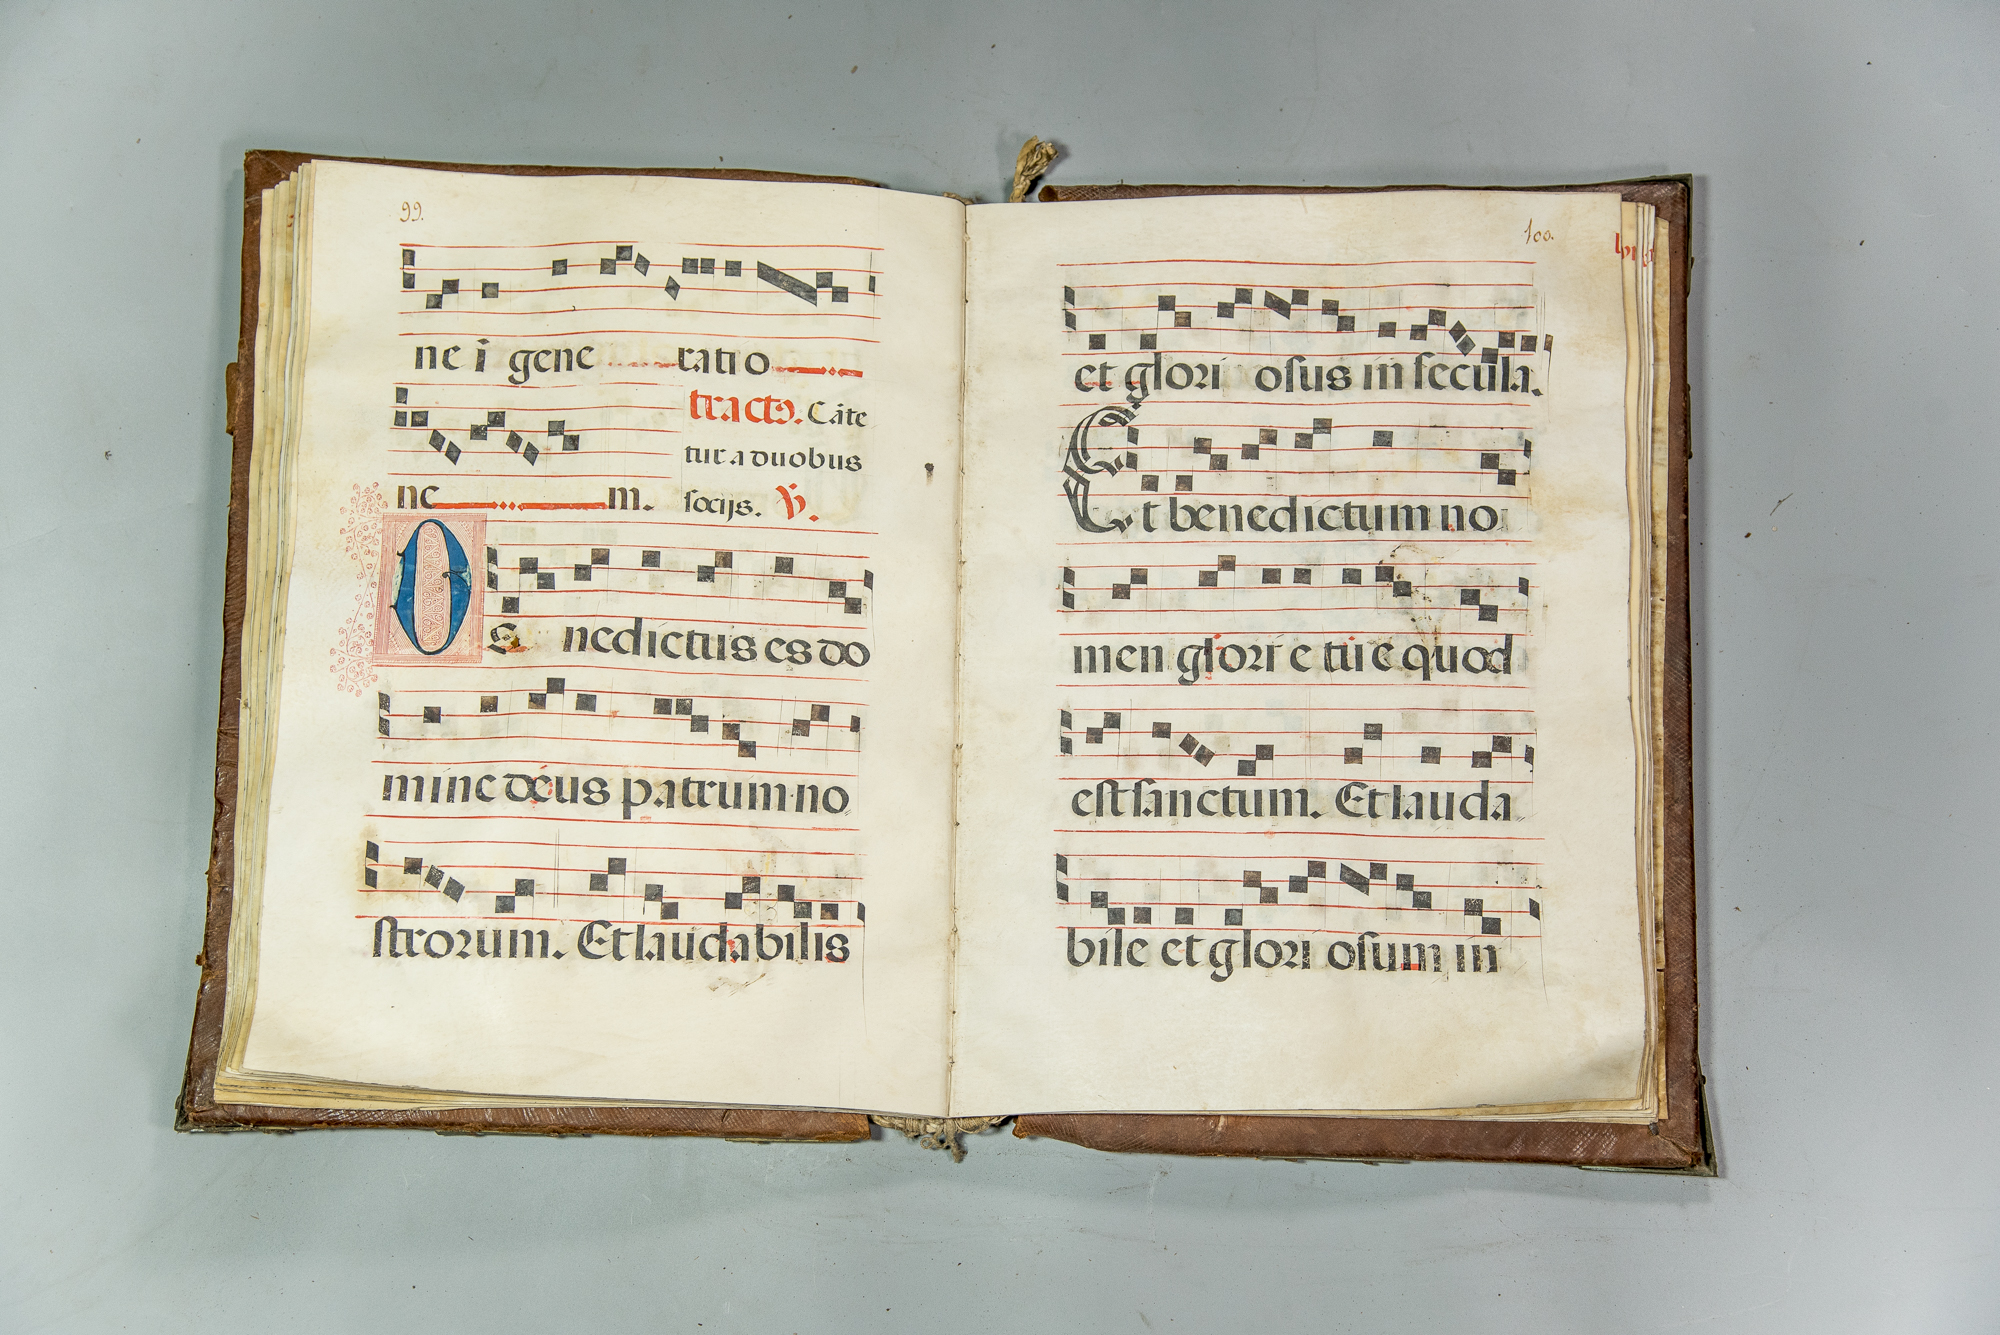 99.
ne ī gene ratio
tractꝰ. Cāte
tur a duobus
ne m. socijs. ℣.
BE nedictus es do
mine deus patrum no
strorum. Et laudabilis
100.
et glori osus in secula.
Et benedictum no
men glorie tue quod
est sanctum. Et lauda
bile et glori osum in